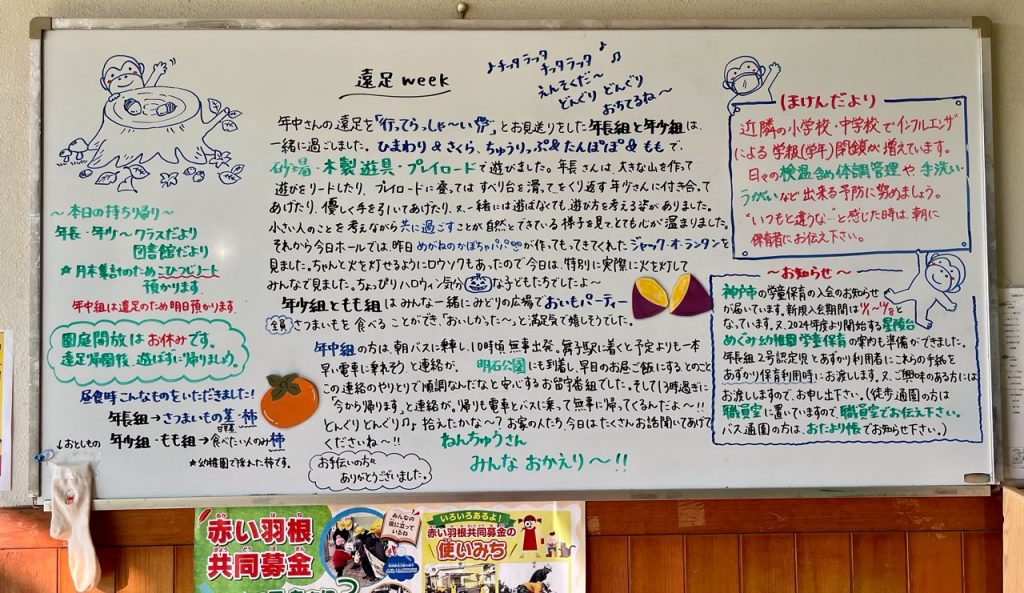 遠足 week
♪チッタ ラッタ ♪
チッタ ラッタ ♫
えんそくだ〜
どんぐり どんぐり
おちてるね〜
年中さんの遠足を「行ってらっしゃ〜い」とお見送りをした年長組と年少組は、
一緒に過ごしました。ひまわり & さくら、ちゅうりっぷ & たんぽぽ & ももで、
砂場・木製遊具・プレイロードで遊びました。年長さんは、大きな山を作って
遊びをリードしたり、プレイロードに登ってはすべり台を滑ってをくり返す年少さんに付き合って
あげたり、優しく手を引いてあげたり、又、一緒には遊ばなくても、遊び方を考える姿がありました。
小さい人のことを考えながら共に過ごすことが自然とできている様子を見て、とても心が温まりました。
それから今日ホールでは、昨日めがねのかぼちゃパパが作ってもってきてくれたジャック・オ・ランタンを
見ました。ちゃんと火を灯せるようにロウソクもあったので今日は、特別に実際に火を灯して
みんなで見ました。ちょっぴりハロウィン気分な子どもたちでしたよ〜
年少組ともも組はみんな一緒にみどりの広場でおいもパーティー
全員 さつまいもを食べることができ、「おいしかった〜」と満足気で嬉しそうでした。
年中組の方は、朝バスに乗車し、10時頃 無事出発。舞子駅に着くと予定よりも一本
早い電車に乗れそう と連絡が。明石公園にも到着し、早目のお昼ご飯にするとのこと。
この連絡のやりとりで順調なんだなと安心するお留守番組でした。そして13時過ぎに
「今から帰ります」と連絡が。帰りも電車とバスに乗って無事に帰ってくるんだよ〜!!
どんぐり どんぐり♫ 拾えたかな〜? お家の人たち、今日はたくさんお話聞いてあげて
くださいね〜!!
ねんちゅうさん
みんな おかえり〜!!
お手伝いの方々
ありがとうございました。
〜本日の持ち帰り〜
年長・年少〜クラスだより
図書館だより
★月末集計のためこひつじノート
預かります
年中組は遠足のため明日預かります.
園庭開放はお休みです。
遠足帰園後、遊ばずに帰りましょう。
昼食時こんなものをいただきました!
年長組→さつまいもの茎・柿
年少組・もも組→食べたい人のみ柿
★幼稚園で採れた柿です。
↓おとしもの
ほけんだより
近隣の小学校・中学校でインフルエンザ
による 学級(学年)閉鎖が増えています。
日々の検温含め体調管理や手洗い・
うがいなど出来る予防に努めましょう。
"いつもと違うな…"と感じた時は、朝に
保育者にお伝え下さい。
〜お知らせ〜
神戸市の学童保育の入会のお知らせ
が届いています。新規入会期間は
となっています。又、2024年度より開始する星陵台
めぐみ幼稚園学童保育の案内も準備ができました。
年長組2号認定児とあずかり利用者にこれらの手紙を
あずかり保育利用時にお渡します。又、ご興味のある方には
お渡ししますので、お申し出下さい。(徒歩通園の方は
職員室に置いていますので、職員室でお伝え下さい。
バス通園の方は、おたより帳でお知らせ下さい。)
赤い羽根
共同募金
みんなの
役に立って
いるね
いろいろあるよ!
赤い羽根共同募金の
使いみち